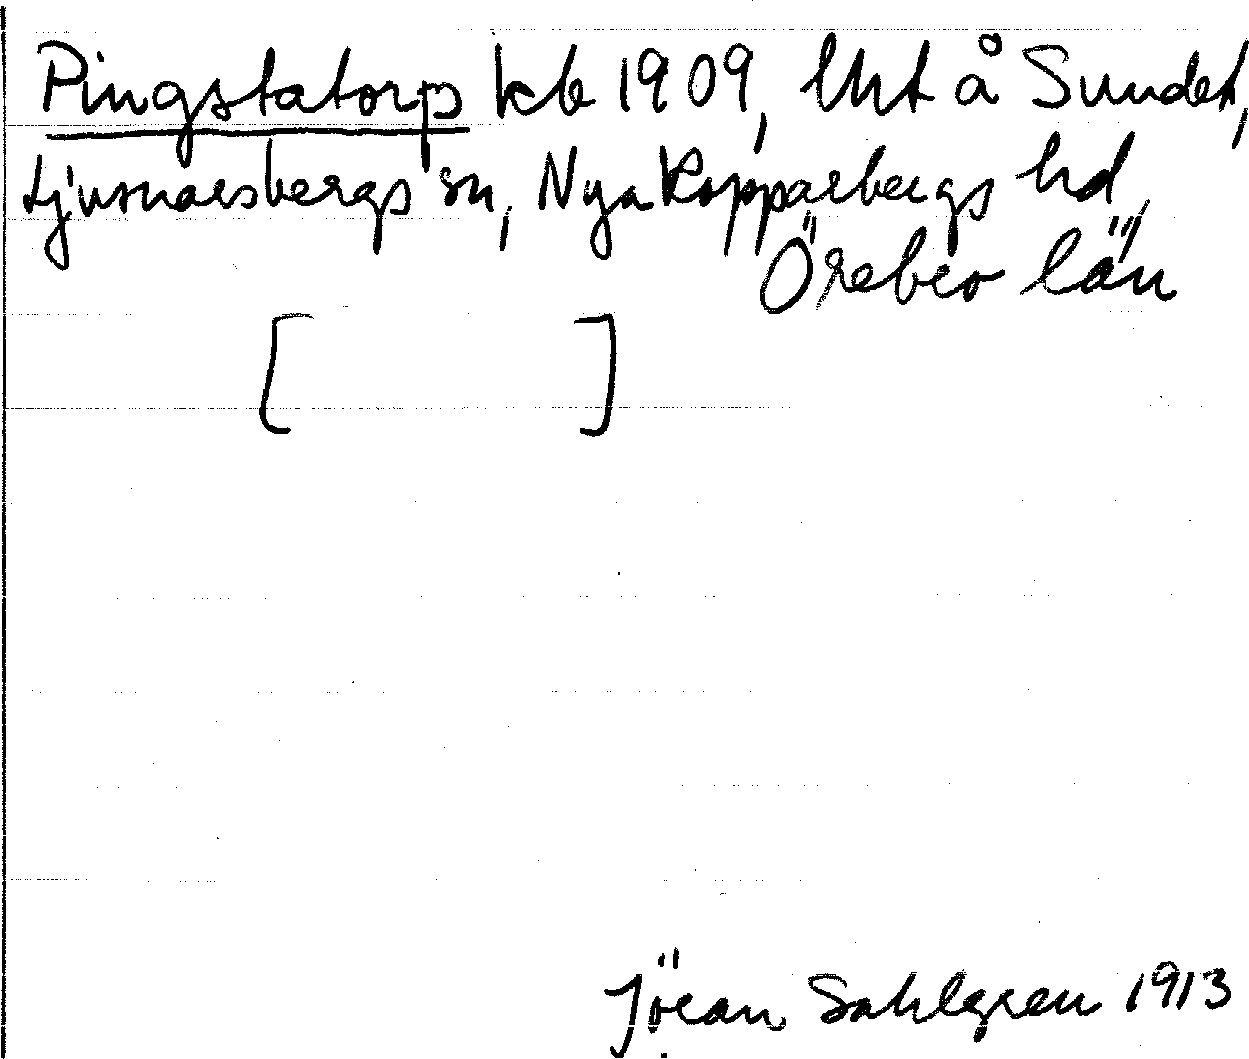 Pingstatorp kb 1909, lht å Sundet,
Ljusnarsbergs sn, Nya Kopparbergs hd,
Örebro län
[ ]
Jöran Sahlgren 1913